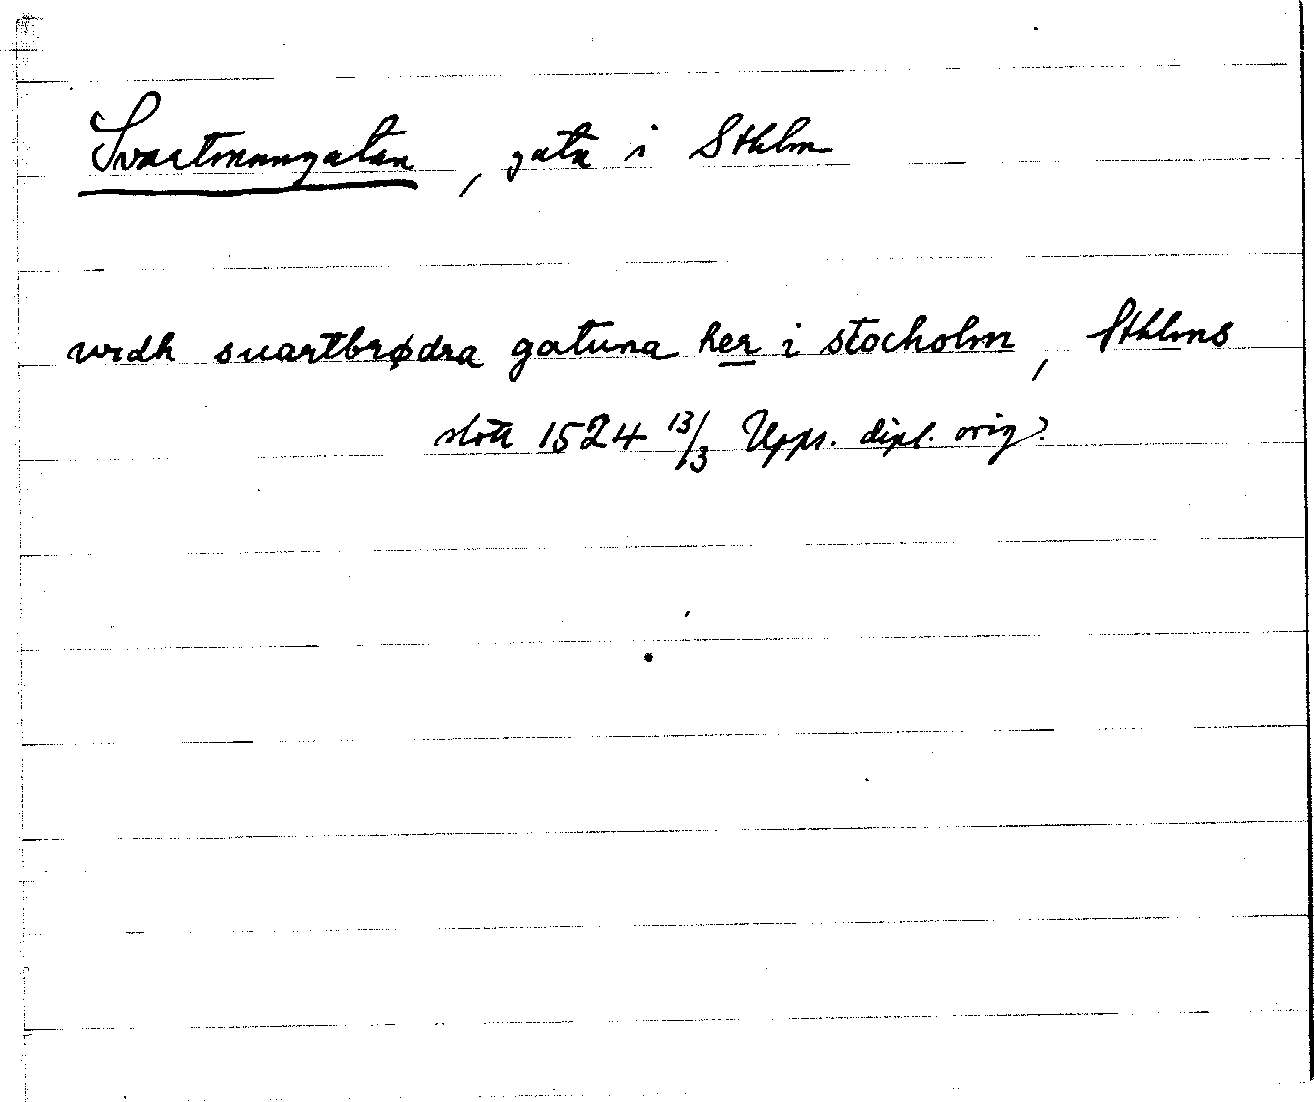 Svartmangatan, gata i Sthlm
widh suartbrødra gatuna her i stocholm, Sthlms
slott 1524 13/3 Upps. dipl. orig.